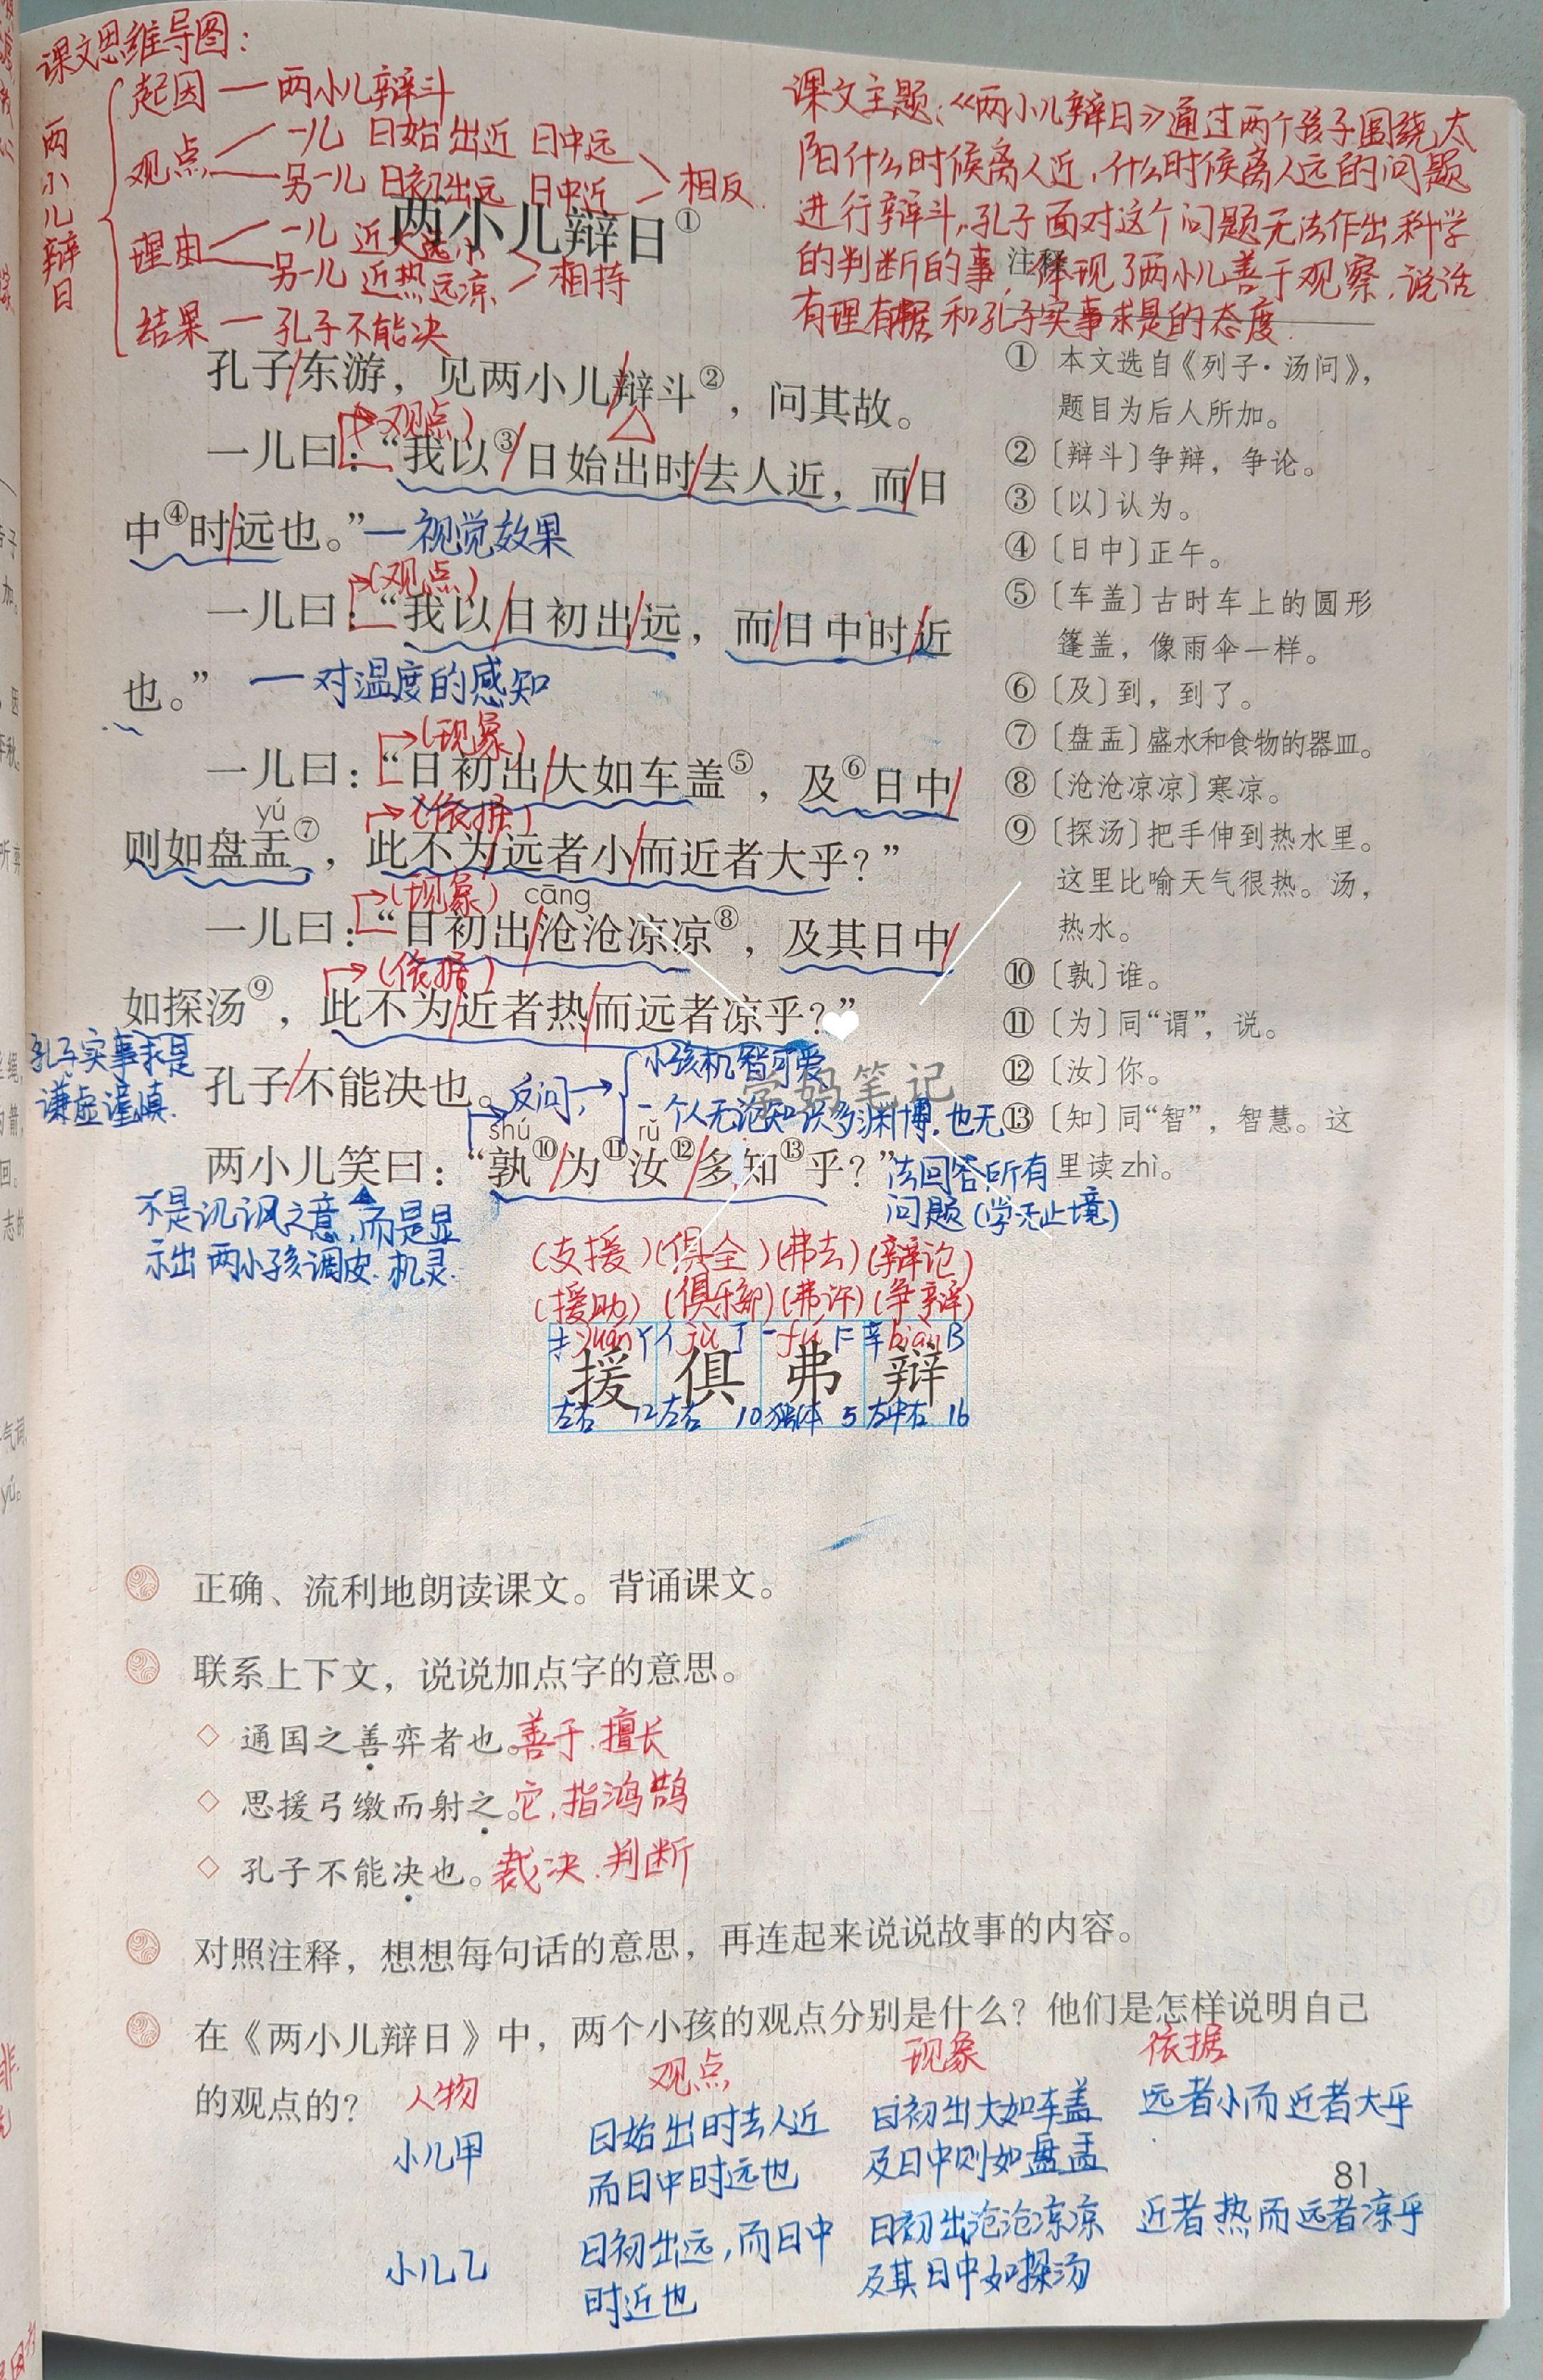 课文思维导图：
两小儿辩日
起因 — 两小儿辩斗
观点 一儿 日始出近 日中远
另一儿 日初出远 日中近 相反
理由 一儿 近大远小
另一儿 近热远凉 相持
结果 — 孔子不能决
课文主题：《两小儿辩日》通过两个孩子围绕太
阳什么时候离人近，什么时候离人远的问题
进行辩斗，孔子面对这个问题无法作出科学
的判断的事，体现了两小儿善于观察，说话
有理有据和孔子实事求是的态度。
两小儿辩日①
孔子/东游，见两小儿/辩斗②，问其故。
（观点）
一儿曰：“我以③/日始出时/去人近，而/日
中④时/远也。”—视觉效果
（观点）
一儿曰：“我以/日初出/远，而/日中时/近
也。” —对温度的感知
（现象）
一儿曰：“日初出/大如车盖⑤，及⑥日中/
yú
（依据）
则如盘盂⑦，此不为/远者小/而近者大乎？”
（现象） cāng
一儿曰：“日初出/沧沧凉凉⑧，及其日中/
（依据）
如探汤⑨，此不为/近者热/而远者凉乎？”
孔子实事求是
谦虚谨慎.
孔子/不能决也。
反问，→
小孩机智可爱
一个人无论知识多渊博，也无
法回答所有
问题（学无止境）
学妈笔记
shú rǔ
两小儿笑曰：“孰⑩/为⑪汝⑫/多知⑬乎？”
不是讥讽之意，而是显
示出两小孩调皮、机灵.
注释
① 本文选自《列子·汤问》，
题目为后人所加。
② 〔辩斗〕争辩，争论。
③ 〔以〕认为。
④ 〔日中〕正午。
⑤ 〔车盖〕古时车上的圆形
篷盖，像雨伞一样。
⑥ 〔及〕到，到了。
⑦ 〔盘盂〕盛水和食物的器皿。
⑧ 〔沧沧凉凉〕寒凉。
⑨ 〔探汤〕把手伸到热水里。
这里比喻天气很热。汤，
热水。
⑩ 〔孰〕谁。
⑪ 〔为〕同“谓”，说。
⑫ 〔汝〕你。
⑬ 〔知〕同“智”，智慧。这
里读zhì。
（支援）（俱全）（弗去）（辩论）
（援助）（俱乐部）（弗许）（争辩）
扌 yuán Y 亻 jù J 一 fú F 辛 biàn B
援 俱 弗 辩
左右 12 左右 10 独体 5 左中右 16
正确、流利地朗读课文。背诵课文。
联系上下文，说说加点字的意思。
◇ 通国之善弈者也。善于.擅长
◇ 思援弓缴而射之。它，指鸿鹄
◇ 孔子不能决也。裁决.判断
对照注释，想想每句话的意思，再连起来说说故事的内容。
在《两小儿辩日》中，两个小孩的观点分别是什么？他们是怎样说明自己
的观点的？
人物 观点 现象 依据
小儿甲 日始出时去人近 日初出大如车盖 远者小而近者大乎
而日中时远也 及日中则如盘盂
81
小儿乙 日初出远，而日中 日初出沧沧凉凉 近者热而远者凉乎
时近也 及其日中如探汤